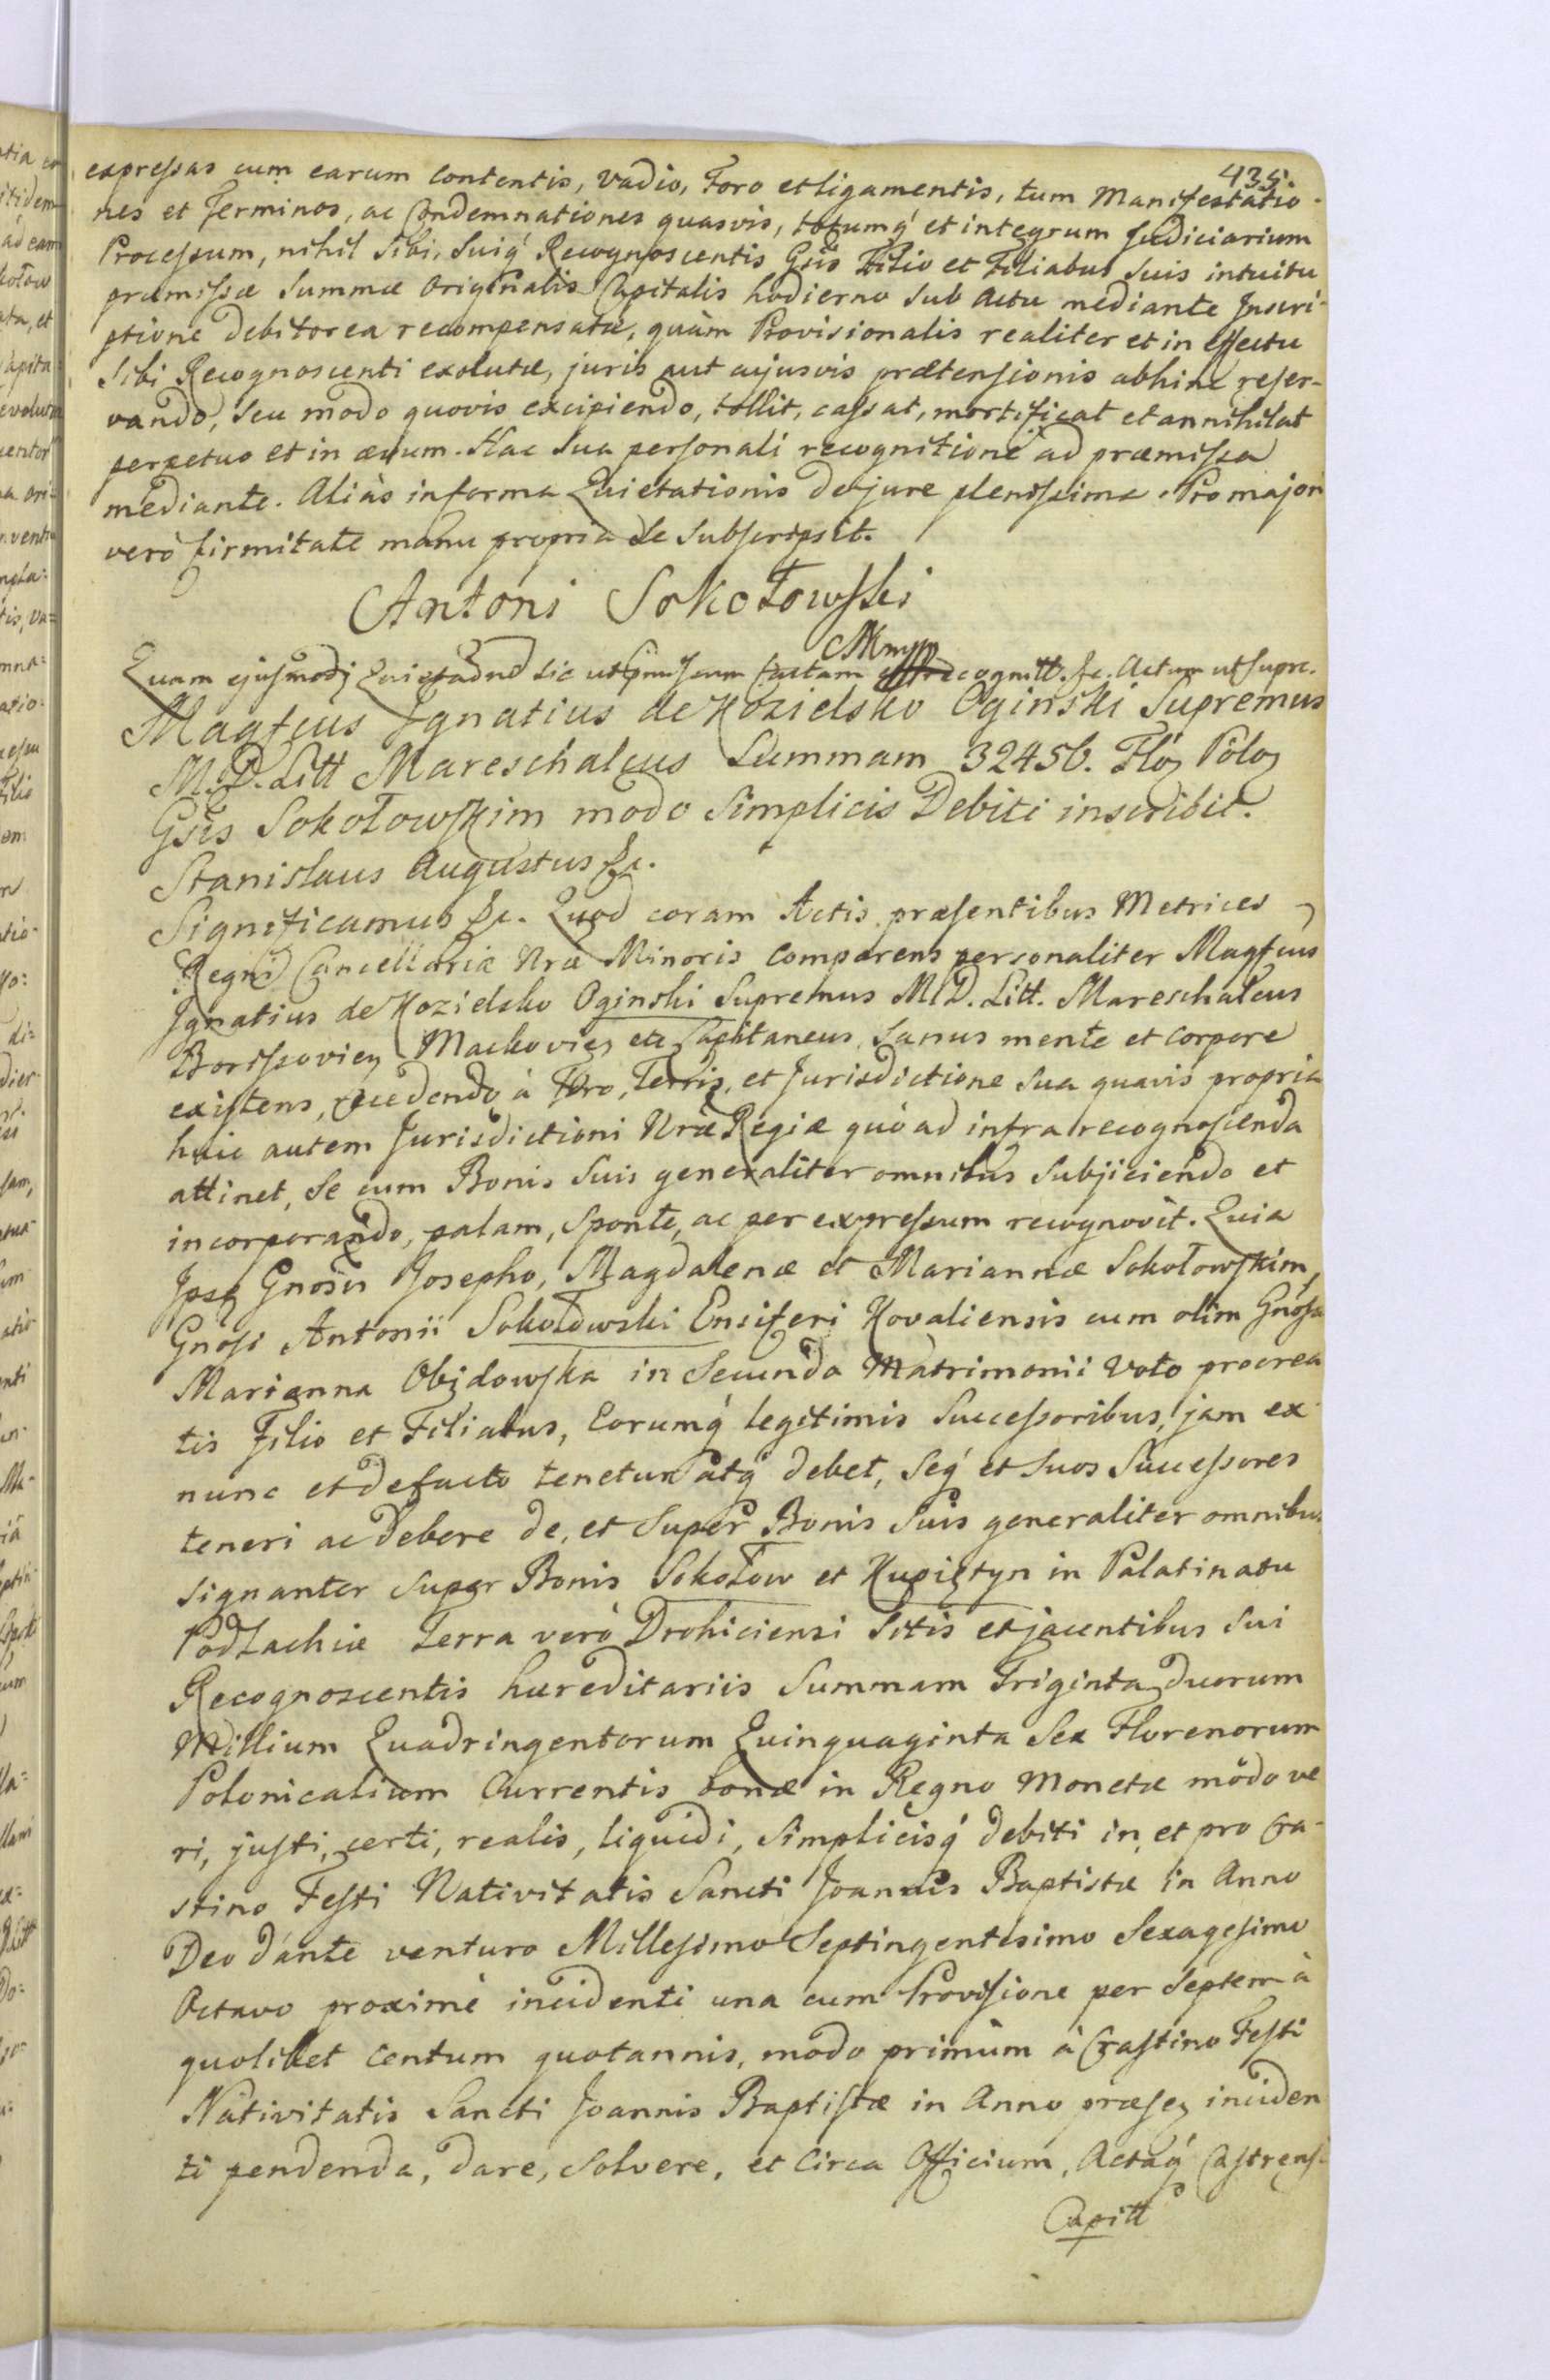 435.
expressas cum earum contentis, vadio, Foro et ligamentis, tum Manifestatio-
nes et Terminos, ac Condemnationes quasvis, totumq́ et integrum Judiciarium
Processum, nihil Sibi, Suiq́ Recognoscentis Gsis Filio et Filiabus Suis intuitu
præmissæ Summæ Originalis Capitalis hodierno sub Actu mediante Inscri-
ptione debitorea recompensatæ, quàm Provisionalis realiter et in effectu
Sibi Recognoscenti exolutæ, juris aut cujusvis prætensionis abhinc reser-
vando, seu modo quovis excipiendo, tollit, cassat, mortificat et annihilat
perpetuo et in ævum. Hac Sua personali recognitione ad præmissa
mediante. Aliàs in forma Quietationis de jure plenissima. Pro majori
verò firmitate manu propria Se Subscripsit.
Antoni Sokołowski
Mmpp
Quam ejusmodi sic factam recognitt. &c. Actum ut supra.
Magfcus Ignatius de Kozielsko Oginski Supremus
M. D. Litt Mareschalcus Summam 32456. Flo₃ Polo₃
Gsis Sokołowskim modo Simplicis Debiti inscribit.
Stanislaus Augustus &c.
Significamus &c. Quod coram Actis præsentibus Metrices
Regni Cancellariæ Nræ Minoris comparens personaliter Magfcus
Ignatius de Kozielsko Oginski Supremus M. D. Litt. Mareschalcus
Borissovien₃ Mackovien₃ etc Capitaneus, Sanus mente et corpore
existens, recedendo à Foro, Terris, et Jurisdictione sua quavis propria
huic autem Jurisdictioni Nræ Regiæ quò ad infra recognoscenda
attinet, Se cum Bonis Suis generaliter omnibus Subjiciendo et
incorporando, palam, sponte, ac per expressum recognovit. Quia
Ipse Gnosis Josepho, Magdalenæ et Mariannæ Sokołowskim,
Gnosi Antonii Sokołowski Ensiferi Kovaliensis cum olim Gnosa
Marianna Obidowska in Secundo Matrimonii Voto procrea
tis Filio et Filiabus, Eorumq́ legitimis Successoribus, jam ex
nunc et de facto tenetur atq́ debet, Seq́ et Suos Successores
teneri ac debere de, et Super Bonis Suis generaliter omnibus
signanter Super Bonis Sokołow et Kupiętyn in Palatinatu
Podlachiæ Terra verò Drohiciensi sitis et jacentibus Sui
Recognoscentis hæreditariis Summam Triginta duorum
Millium Quadringentorum Quinquaginta Sex Florenorum
Polonicalium Currentis bonæ in Regno Monetæ modo ve
ri, justi, certi, realis, liquidi, Simplicisq́ debiti in et pro Cra-
stino Festi Nativitatis Sancti Joannis Baptistæ in Anno
Deo dante venturo Millesimo Septingentesimo Sexagesimo
Octavo proximè incidenti una cum Provisione per Septem à
quolibet centum quotannis, modo primùm à Crastino Festi
Nativitatis Sancti Joannis Baptistæ in Anno præse₃ inciden
ti pendenda, dare, solvere, et circa Officium, Actaq́ Castrens:
Capitt